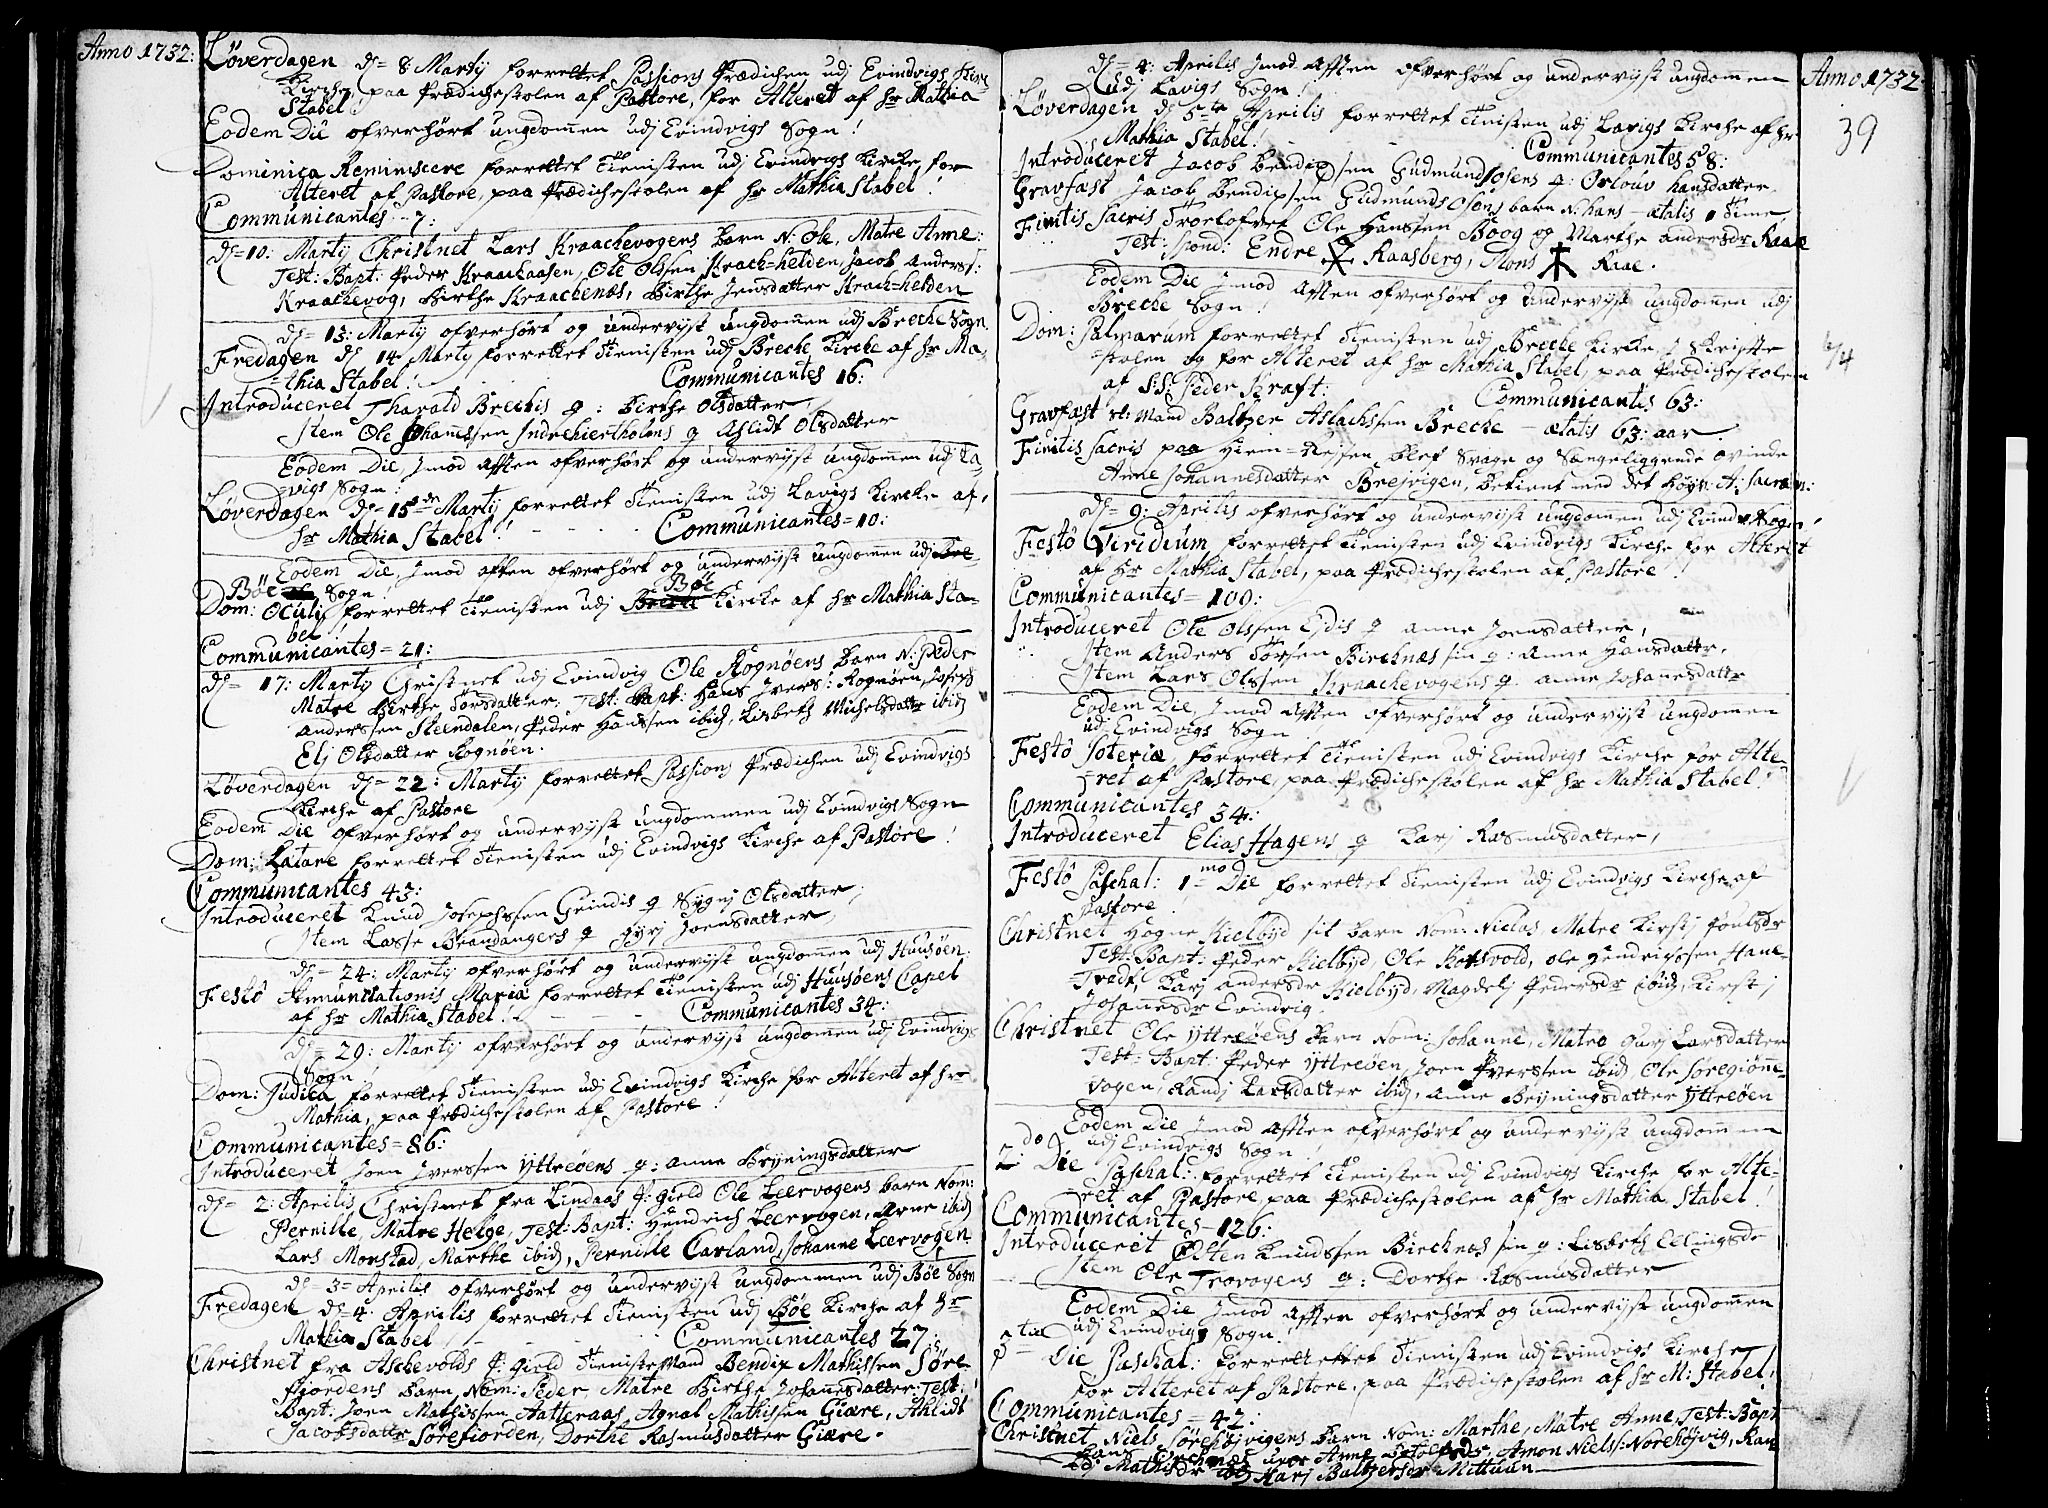 Anno 1732:
Løverdagen d= 8 Martij forrettet Passions Prædichen udj Evindvigs Kir-
Kirche, paa Prædichestolen af Pastore, for Alteret af Hr Mathia
Stabel!
Eodem Die ofverhørt ungdomen udj Evindvigs Sogn!
Dominica Reminiscere forrettet Tienisten udj Evindvigs Kirche, for
Alteret af Pastore, paa Prædichestolen af Hr Mathia Stabel!
Communicantes - 7:
d= 10: Martij Christnet Lars Kraachevogens Barn N: Ole, Matre Anne:
Test: Bapt: Peder Kraachaasen, Ole Olssen Krach=helden, Jacob Anderss:
Kraachevog, Birthe Kraachenæs, Birthe Jensdatter Krach=helden
d= 13: Martij ofverhørt og undervijst ungdomen udj Breche Sogn
Fredagen d= 14 Martij forrettet Tienisten udj Breche Kirche af Hr Ma-
=thia Stabel! Communicantes 16:
Introduceret Tharald Brechis q: Birthe Olsdatter
Item Ole Johanessen Indrehiertholms q Ahlidt Olsdatter
Eodem Die, Jmod Afften ofverhørt og undervijst ungdomen udj La-
vigs Sogn:
Løverdagen d= 15de Martij forrettet Tienisten udj Lavigs Kirche af,
Hr Mathia Stabel! Communicantes = 10:
Eodem Die, Jmod afften ofverhørt og undervijst ungdomen udj
Böe Sogn!
Dom: Oculi forrettet Tienisten udj Böe Kirche af Hr Mathia Sta-
bel
Communicantes = 21:
d= 17: Martij Christnet udj Evindvig Ole Rognøens Barn N: Peder
Matre Birthe Torsdatter: Test: Bapt: Hans Ivers: Rognøen, Joseph
Anderssen Steendalen, Peder Hanssen ibid, Lisbeth Michelsdattr ibid
Elj Olsdatter Rognøen.
Løverdagen d= 22: Martij forrettet Passions Prædichen udj Evindvigs
Kirche af Pastore
Eodem Die ofverhørt og undervijst ungdommen udj Evindvigs Sogn
Dom: Lætare forrettet Tienisten udj Evindvigs Kirche af Pastore!
Communicantes 43:
Introduceret Knud Josephssen Grindis q Sygnj Olsdatter,
Item Lasse Brandangers q Gyrj Joensdatter,
d= 24: Martij ofverhørt og undervijst ungdomen udj Huusøen
Festô Annunciationis Mariæ forrettet Tienisten udj Huusøens Capel
af Hr Mathia Stabel! Communicantes 34:
d= 29: Martij ofverhørt og undervijst ungdomen udj Evindvigs
Sogn
Dom: Judica forrettet Tienisten udj Evindvigs Kirche for Alteret af Hr
Mathia, paa Prædichestolen af Pastore!
Communicantes = 86:
Introduceret Joen Jverssen Yttreøens q: Anne Bryningsdatter
d= 2: Aprilis Christnet fra Lindaas P: gield Ole Leervogens barn Nom:
Pernille, Matre Helge, Test: Bapt: Hendrich Leervogen, Arne ibid
Lars Morstad, Marthe ibid, Pernille Carland, Johanne Leervogen
d= 3= Aprilis ofverhørt og undervijst ungdommen udj Böe Sogn
Fredagen d= 4. Aprilis forrettet Tienisten udj Böe Kirche af Hr
Mathia Stabel Communicantes 27:
Christnet fra Aschevolds P: gield Tienistemand Bendix Mathissen Søre
fiordens Barn, Nom: Peder, Matre Birthe Johanesdatter: Test:
Bapt: Joen Mathissen Aatteraas, Agnal Mathissen Giære, Ahlidt
Jacobsdattr Sørefiorden, Dorthe Rasmusdatter Giære.
d= 4: Aprilis Jmod Afften ofverhørt og undervijst ungdommen
udj Lavigs Sogn!
Løverdagen d= 5te Aprilis forrettet Tienisten udj Lavigs Kirche af Hr
Mathia Stabel! Communicantes 58:
Introduceret Jacob Bendixsen Gudmundsosens q: Orlouv Hansdatter
Gravfæst Jacob Bendixsen Gudmunds Osens barn N: Hans - ætatis 1 Time,
Finitis Sacris Trolofvet Ole Hanssen Böog og Marthe Andersdr Raae
Test: Spond: Endre Raasberg, Mons Raae.
Eodem Die Jmod Afften ofverhørt og undervijst ungdomen udj
Breche Sogn!
Dom: Palmarum forrettet Tienisten udj Breche Kirche, J Skrifte
=stolen og for Alteret af Hr Mathia Stabel, paa Prædichestolen
af S:S: Peder Kraft: Communicantis 63:
Gravfæst Mand Baltzer Aslachssen Breche - ætatis 63: aar
Finitis Sacris paa Hiem=Reisen blef Svage og Sængeliggende qvinde
Anne Johannesdatter Brejvigen, betient med det Høyv: A: Sacram:
d= 9: Aprilis ofverhørt og undervijst ungdomen udj Evindv: Sogn!
Festô Viridium forrettet Tienisten udj Evindvigs Kirche for Alteret
af Hr Mathia Stabel, paa Prædichestolen af Pastore
Communicantes = 100:
Introduceret Ole Olssen Ejdis q Anne Joensdatter,
Item Anders Torsen Birchnæs sin q: Anne Hansdatter,
Item Lars Olssen Kraachevogens q. Anne Johanesdattr
Eodem Die, Jmod Afften ofverhørt og undervijst ungdomen
udj Evindvigs Sogn
Festô Soteriæ, forrettet Tienisten udj Evindvigs Kirche for Alte-
ret af Pastore, paa Prædichestolen af Hr Mathia Stabel!
Communicantes 34:
Introduceret Elias Hagens q Karj Rasmusdatter,
Festô Paschal: 1mo Die forrettet Tienisten udj Evindvigs Kirche af
Pastore!
Christnet Hogne Kielbyd sit barn Nom: Niclas, Matre Kirstj Poulsdr
Test: Bapt: Peder Kielbyd, Ole Kotsvold, Ole Hendrichssen Hane-
Tvedt, Karj Andersdr Kielbyd, Magdelj Pedersdr ibid, Kirstj
Johanesdr Evindvig.
Christnet Ole Yttreöens Barn Nom: Johanne, Matre Gurj Larsdatter
Test: Bapt: Peder Yttreöen, Joen Iverssen ibid, Ole Søregiönne-
vogen, Randj Larsdatter ibid, Anne Bryningsdatter Yttreöen
Eodem Die Jmod Afften ofverhørt og undervijst ungdommen
udj Evindvigs Sogn!
2do Die Paschal: forrettet Tienisten udj Evindvigs Kirche for Alte-
ret af Pastore, paa Prædichestolen af Hr Mathia Stabel!
Communicantes - 126:
Introduceret Elten Knudssen Birchnæs sin q: Lisbeth Ellingsdr
Item Ole Trovogens q: Dorthe Rasmusdatter
Eodem Die Jmod Afften ofverhørt og undervijst ungdomen
udj Evindvigs Sogn!
3tia Die Paschal: forrettet Tienisten udj Evindvigs Kirche
for Alteret af Pastore, paa Prædichestolen af Hr M: Stabel!
Communicantes = 42:
Christnet Niels Sørehøjvigens Barn Nom: Marthe, Matre Anne, Test: Bapt
uxor Anne Amon Niels: Norehøjvig, Ran
Mathisdr ibid Karj Baltzersdr Mittuun
Anno 1732
39
6/4